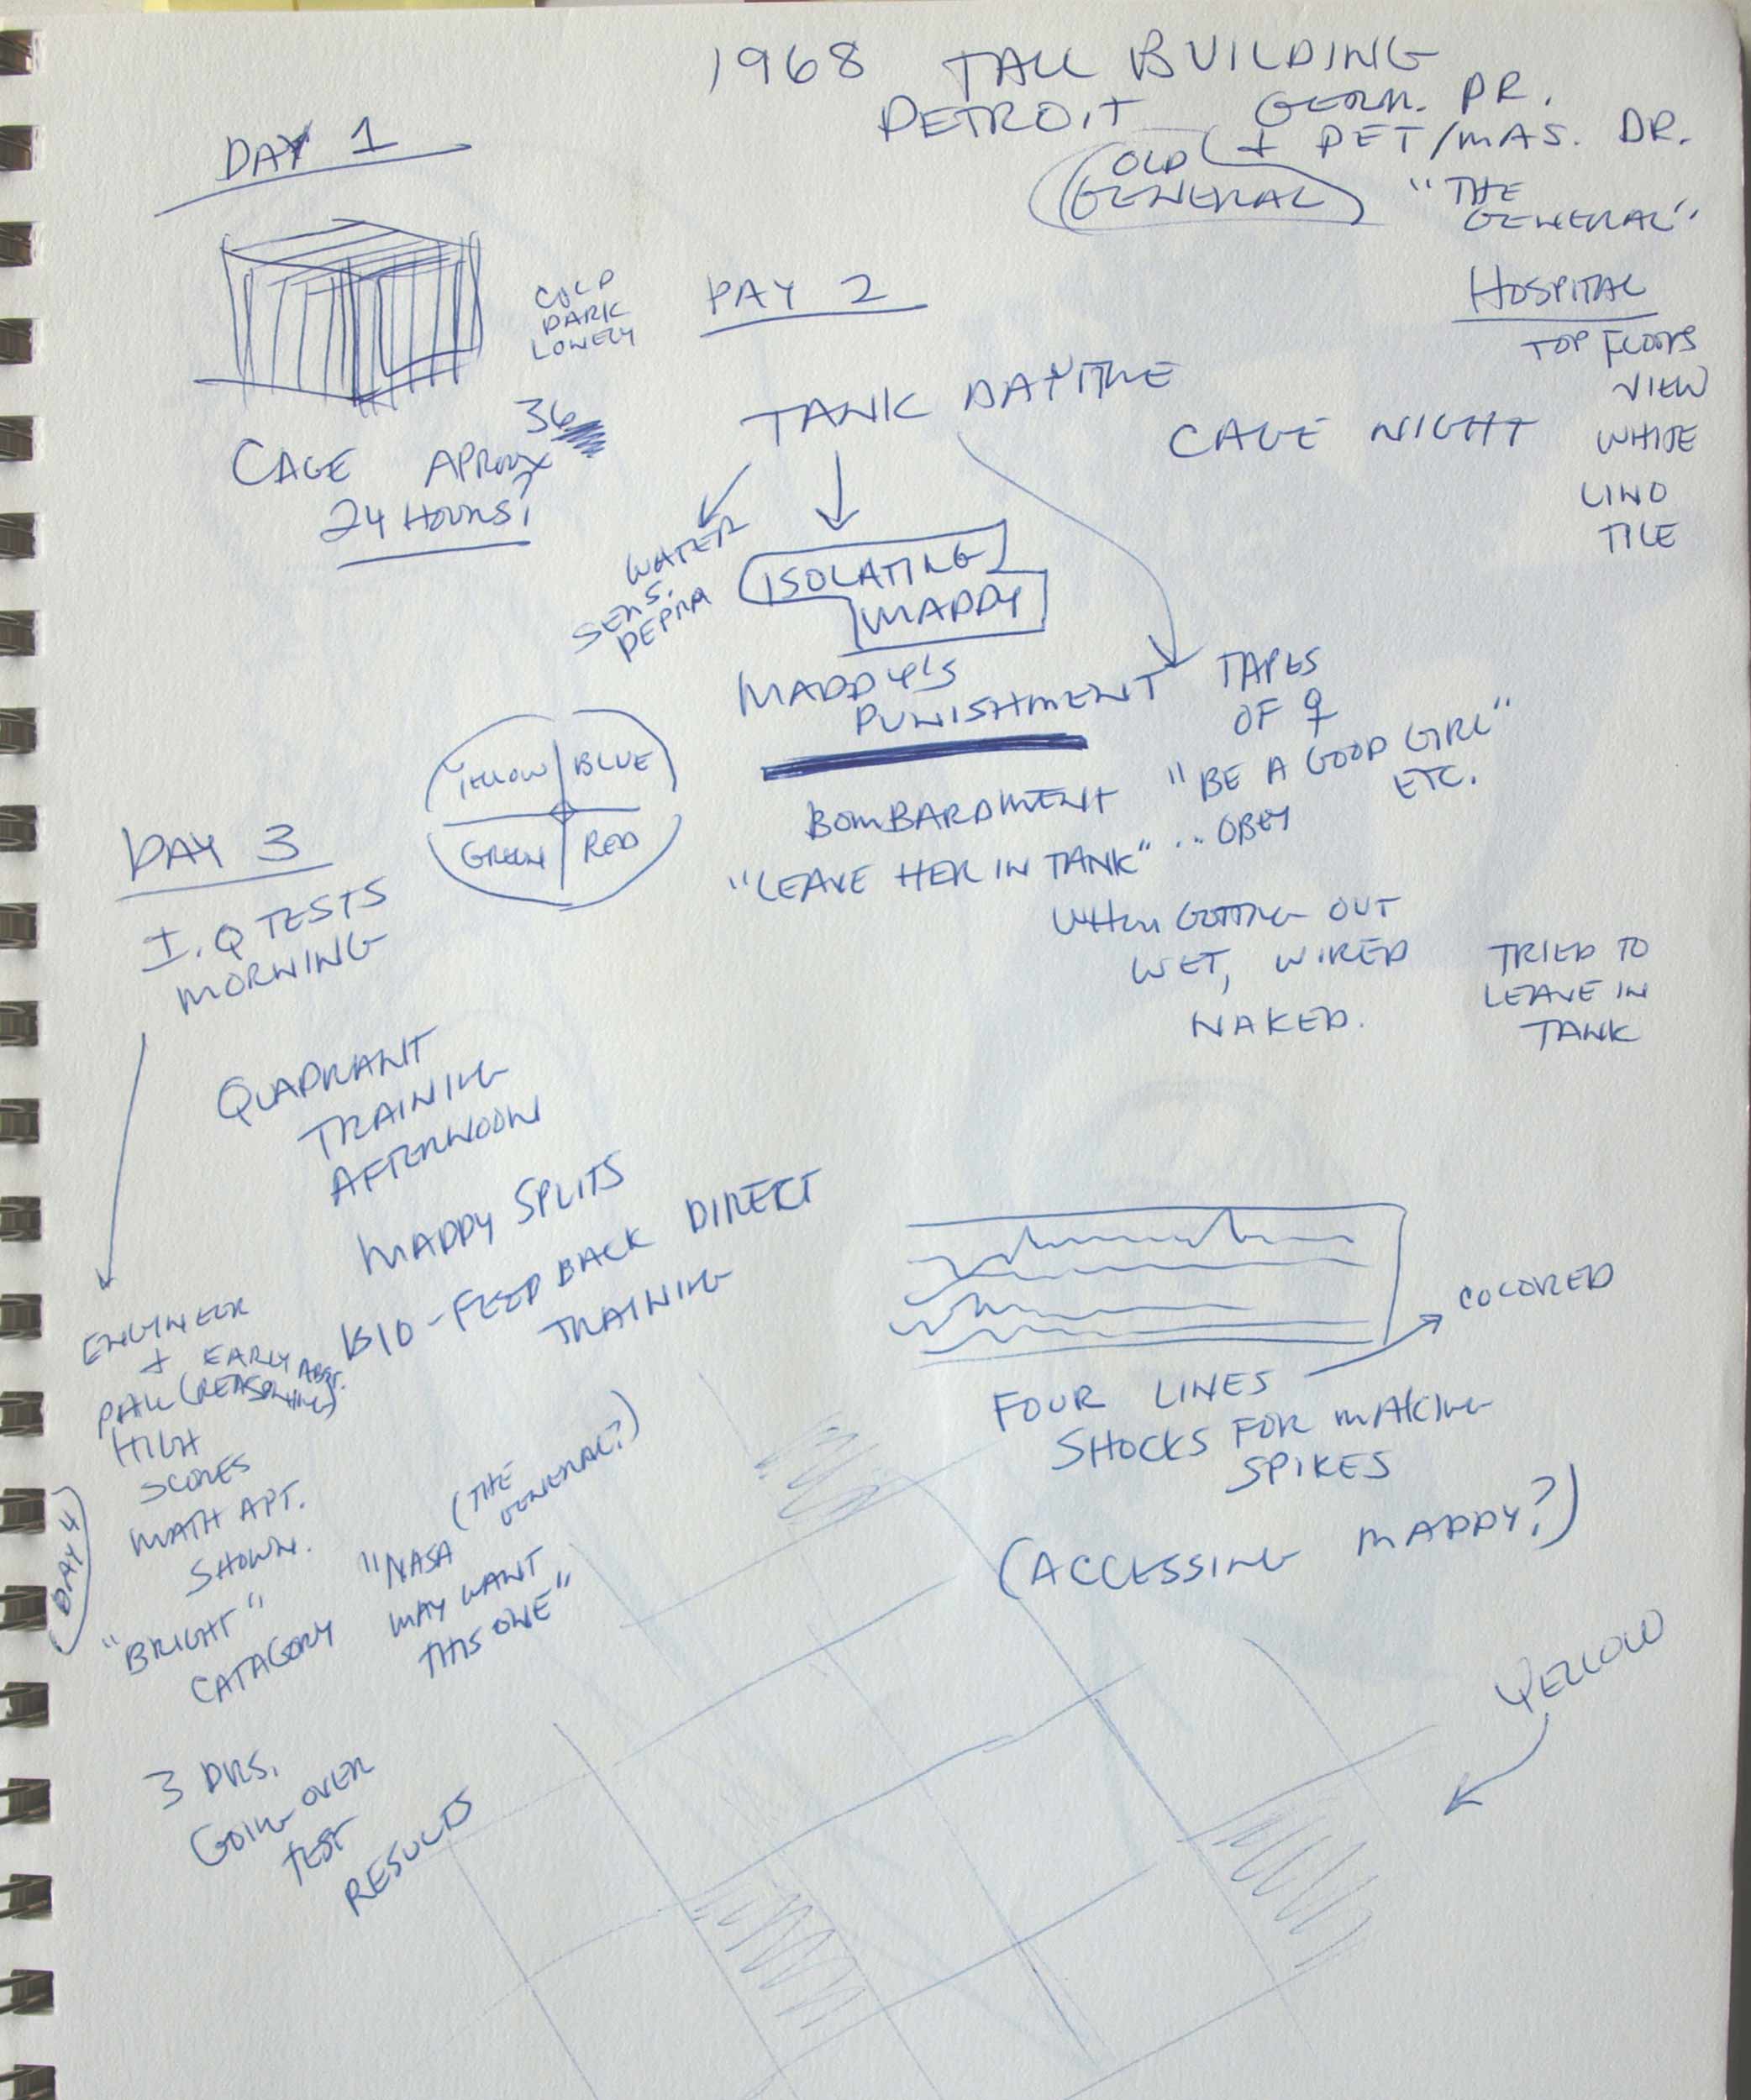 1968 TALL BUILDING
DETROIT GERM. DR.
+ DET/MAS. DR.
OLD
GENERAL
"THE
GENERAL"
DAY 1
COLD
DARK
LONELY
CAGE APROX
36
24 HOURS?
DAY 2
TANK DAYTIME
CAGE NIGHT
HOSPITAL
TOP FLOORS
VIEW
WHITE
LINO
TILE
WATER
SENS.
DEPRA
ISOLATING
MADDY
MADDY'S
PUNISHMENT
TAPES
OF ♀
"BE A GOOD GIRL"
ETC.
BOMBARDMENT
"LEAVE HER IN TANK" ... OBEY
WHEN GETTING OUT
WET, WIRED
NAKED.
TRIED TO
LEAVE IN
TANK
YELLOW BLUE
GREEN RED
DAY 3
I.Q TESTS
MORNING
QUADRANT
TRAINING
AFTERNOON
MADDY SPLITS
BIO-FEED BACK DIRECT
TRAINING
ENGINEER
+ EARLY
(REASONING)
HIGH
SCORES
MATH APT.
SHOWN.
"BRIGHT"
CATAGORY
DAY 4
(THE
GENERAL?)
"NASA
MAY WANT
THIS ONE"
3 DRS.
GOING OVER
TEST
RESULTS
COLORED
FOUR LINES
SHOCKS FOR MAKING
SPIKES
(ACCESSING MADDY?)
YELLOW